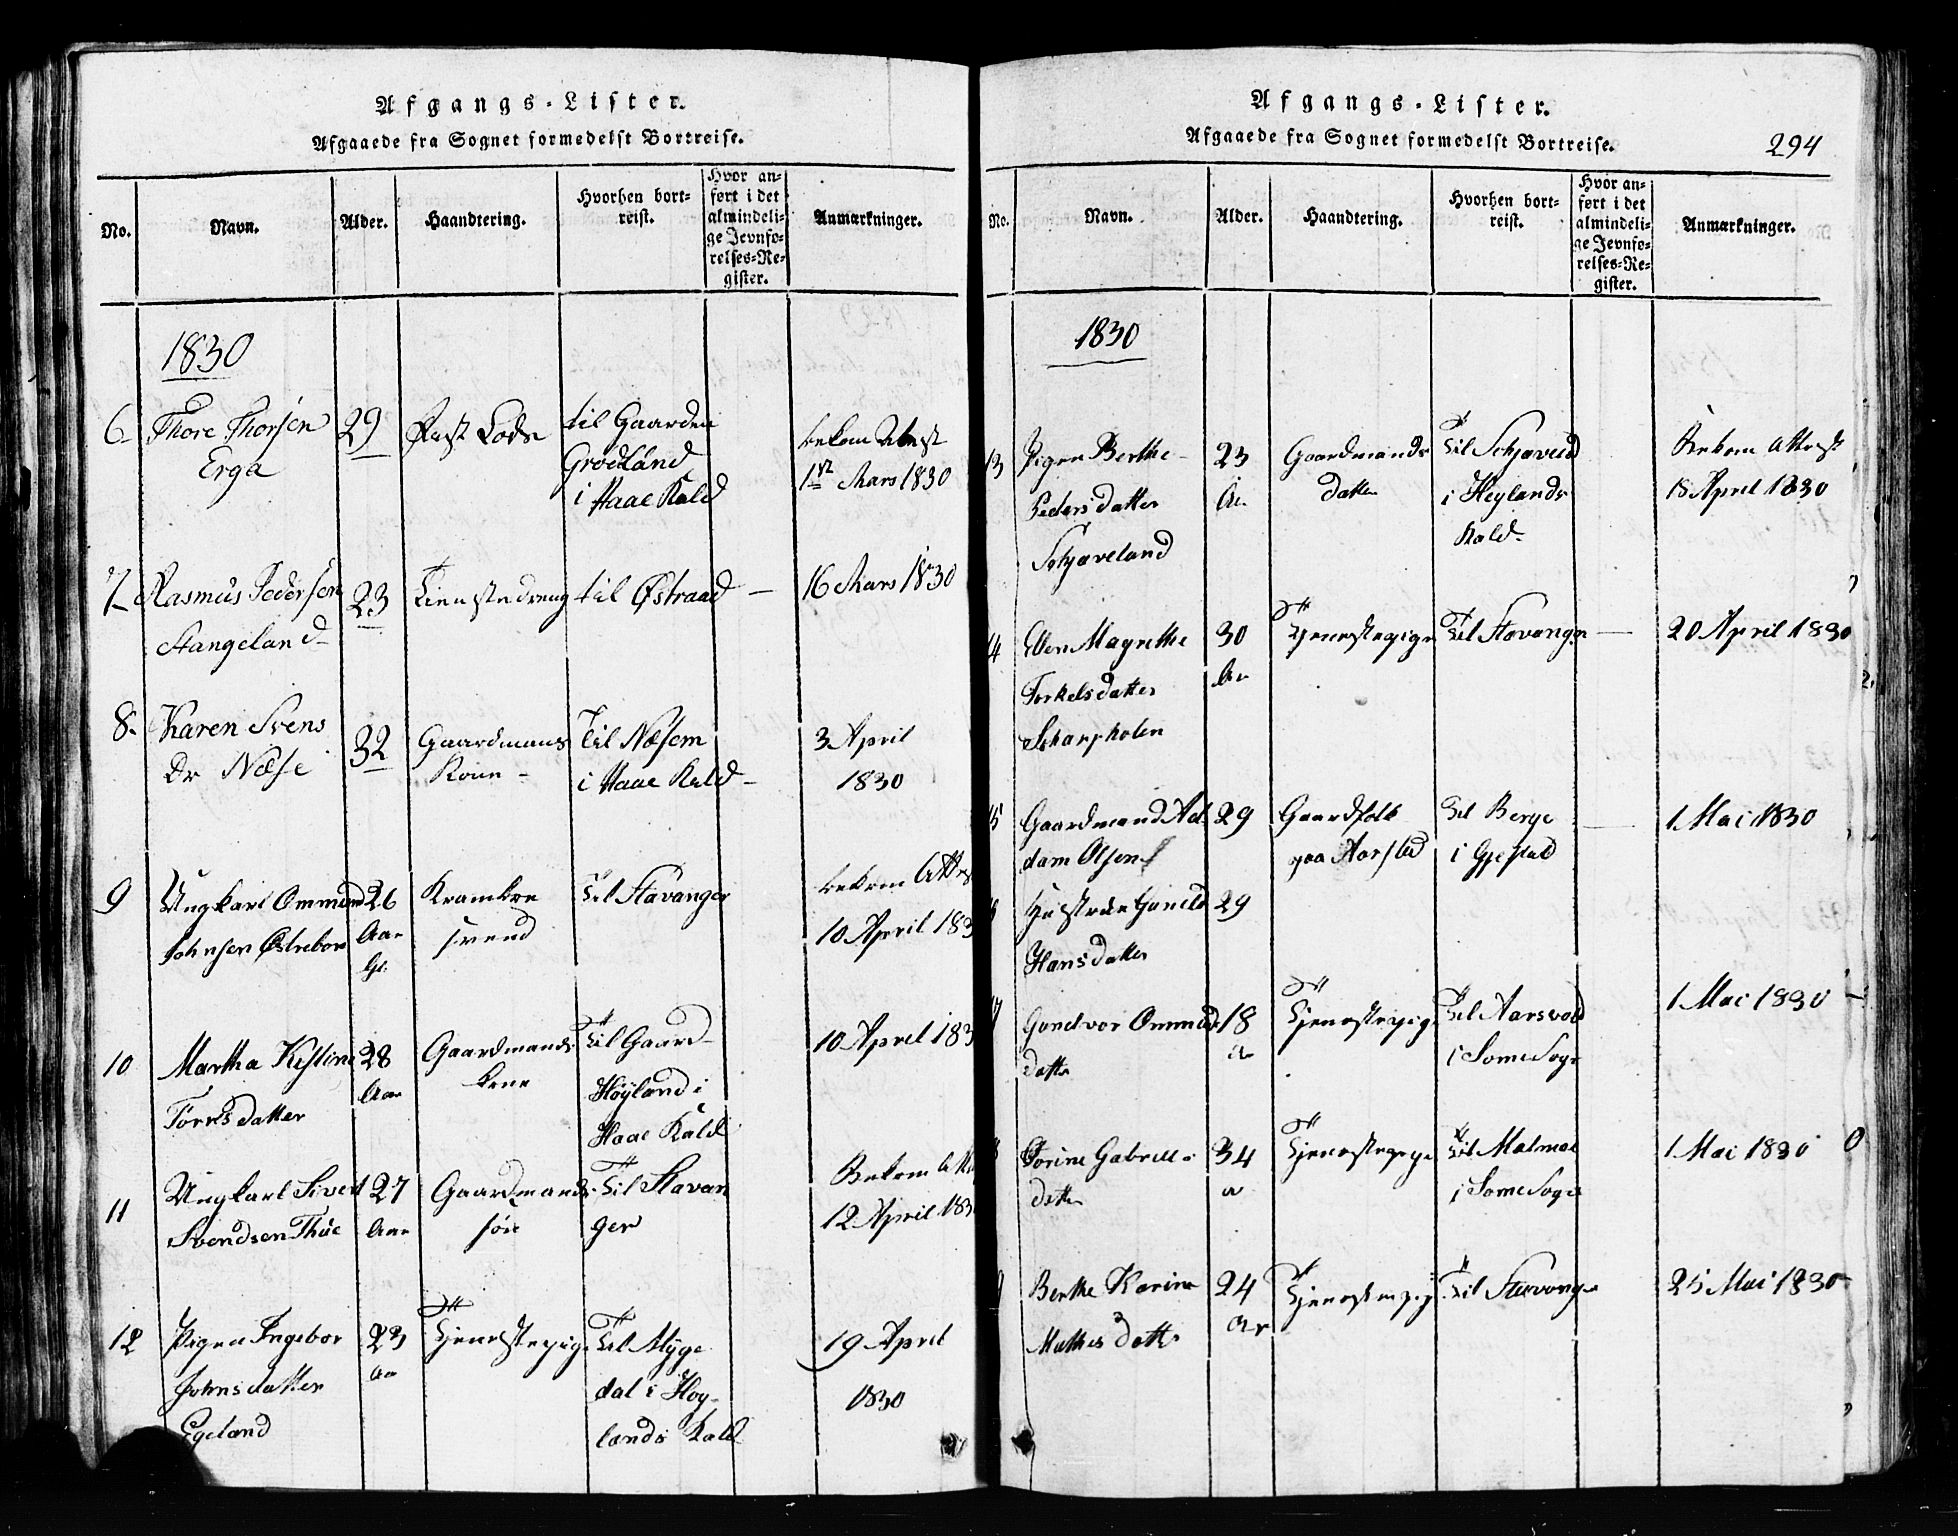 Afgangs-Lister.
Afgaaede fra Sognet formedelst Bortreise.
No.
Navn.
Alder.
Haandtering.
Hvorhen bort-
reist.
Hvor an-
ført i det
almindeli-
ge Jevnfø-
relses-Re-
gister.
Anmærkninger.
1830
6
Thore Thorsen
Erga
29
Lods
til Gaarden
Grødland
i Haae Kald
bekom Attest
1 Mars 1830
7
Rasmus Pedersen
Stangeland
23
Tienestedreng
til Østraad
16 Mars 1830
8
Karen Svens
Dr Næse
32
Gaardmans
Kone
Til Næsem
i Haae Kald
3 April
1830
9
Ungkarl Ommund
Johnsen Østrebøe
26
Aar
Gl.
svend
Til Stavanger
bekom Attest
10 April 183
10
Martha Kistine
Torresdatter
28
Aar
Gaardmands
kone
Til Gaard
Høyland i
Haae Kald
10 April 183
11
Ungkarl Sivert
Svendsen Thue
27
Aar
Gaardmands
søn
Til Stavan
ger
Bekom Att
12 April 183
12
Pigen Ingebor
Johnsdatter
Egeland
23
aar
Tjenestepige
Til Myge
dal i Høy
lands Kald
19 April
1830
Afgangs-Lister.
Afgaaede fra Sognet formedelst Bortreise.
294
No.
Navn.
Alder.
Haandtering.
Hvorhen bort-
reist.
Hvor an-
ført i det
almindeli-
ge Jevnfø-
relses-Re-
gister.
Anmærkninger.
1830
13
Pigen Berthe
Pedersdatter
Schjæveland
23
Aar
Gaardmands
datter
Til Schjæveld
i Høylands
Kald
Bekom Attest
18 April 1830
4
Ellen Magrethe
Torkelsdatter
Scharpholen
30
Aar
Tjenestepige
Til Stavanger
20 April 1830
15
Gaardmand Ad
dam Olsen
29
Gaardfolk
paa Aarstad
Til Berge
i Gjestad
1 Mai 1830
Hustrue Gunild
Hansdatter
29
Gundvor Ommunds
datter
18
Tjenestepige
Til Aarsvold
i Somme Sogn
1 Mai 1830
Torine Gabriels
datter
34
Tjenestepige
Til Malmei
i Somme Sogn
1 Mai 1830
Berthe Karine
Mathisdatter
24
Aar
Tjenestepige
Til Stavanger
25 Mai 1830